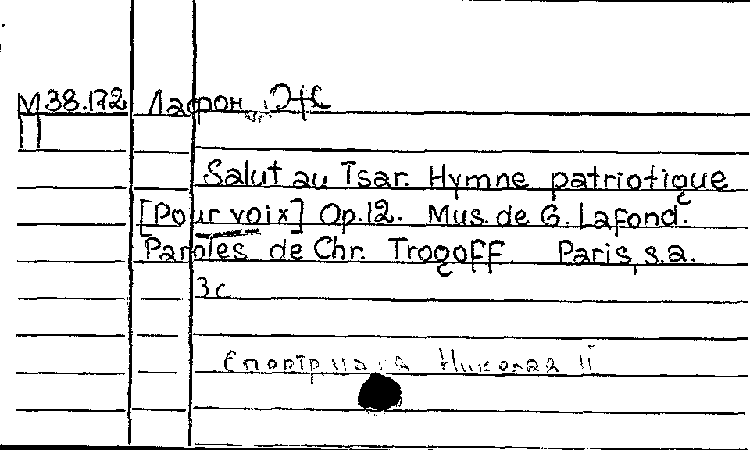 М38.172 Лафон, Ж
Salut au Tsar. Hymne patriotique
[Pour voix] Op.12. Mus. de G. Lafond.
Paroles de Chr. Trogoff. Paris, s.a.
3 с
Николая II